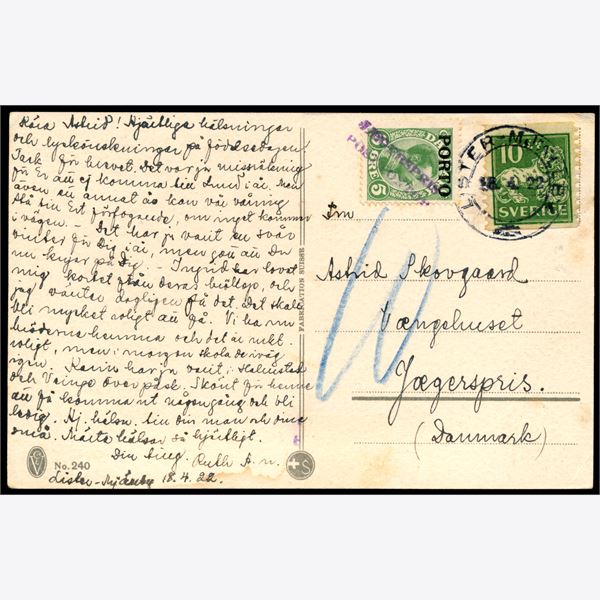 Kära Astrid! Hjärtliga hälsningar
och lyckönskningar på födelsedagen.
Tack för brevet. Det var ju missräkning
för Er att ej komma till Lund i år, men
även ett annat år kan vår våning
stå till Ert förfogande, om inget kommer
i vägen. — Det har ju varit en svår
vinter för Dig i år, men gott att Du
nu kryar på Dig. — Ingrid har lovat
mig kortet från deras bröllop, och
jag väntar dagligen på det. Det skall
bli mycket roligt att få. Vi ha nu
hemma och det är
roligt, men i morgon skola de iväg
igen. Karin har ju varit i Halmstad
och Veinge över påsk. Skönt för henne
att få komma ut någon gång och bli
ledig. Hj. hälsn. till din man och dina
små. Märta hälsar så hjärtligt.
Din tillg. Ruth
Lister-Mjällby 18.4.22.
No. 240
FABRICATION SUISSE
+S
PORTO
5 ØRE
10
SVERIGE
LISTER-MJÄLLBY
18. 4. 22
10
Fru
Astrid Skovgaard
Vængehuset
Jægerspris.
(Danmark)